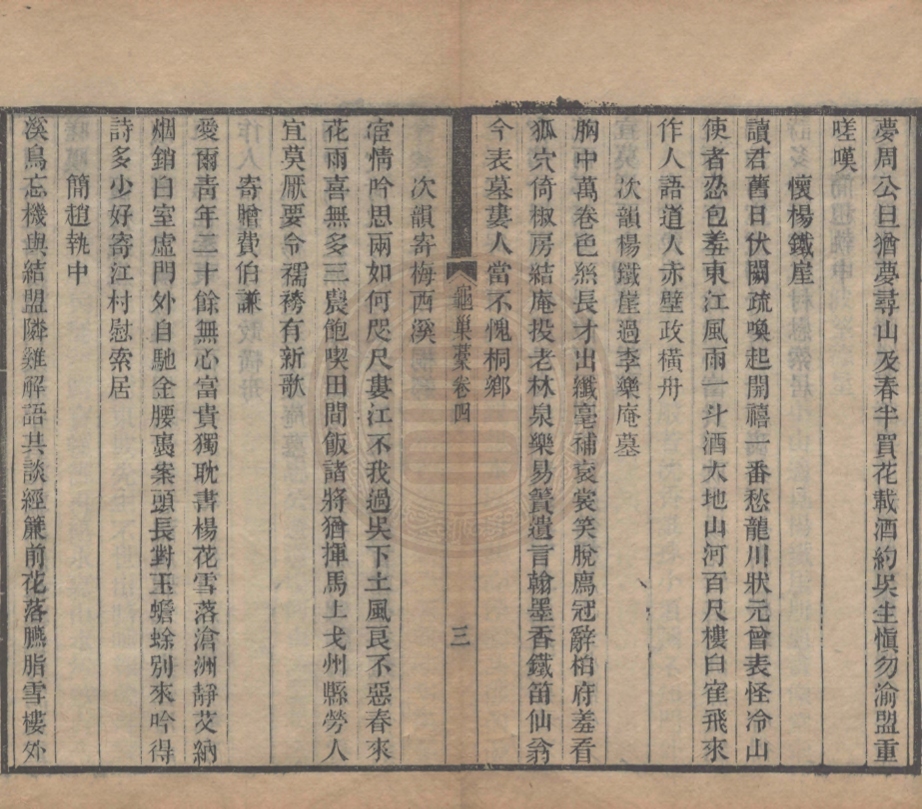 夢周公日猶夢尋山及春半買花載酒約吳生愼勿渝盟重
嗟嘆
懷楊鐵崖
讀君舊日伏闕疏喚起開禧一番愁龍川狀元曾表怪冷山
使者忍包羞東江風雨一斗酒大地山河百尺樓白隺飛來
作人語道人赤壁政橫舟
次韻楊鐵崖過李樂庵墓
胸中萬卷色無長才出纖毫補衮裳笑脫廌冠辭柏府羞看
狐穴倚椒房結庵投老林泉樂易簀遺言翰墨香鐵笛仙翁
今表墓婁人當不愧桐鄉
龜巢藁卷四
三
次韻寄梅西溪
宦情吟思兩如何咫尺婁江不我過吳下土風良不惡春來
花雨喜無多三農飽喫田間飯諸將猶揮馬上戈州縣勞人
宜莫厭要令襦袴有新歌
寄贈費伯謙
愛爾靑年二十餘無心富貴獨耽書楊花雪落滄洲靜艾納
烟銷白室虛門外自馳金腰褭案頭長對玉蟾蜍別來吟得
詩多少好寄江村慰索居
簡趙執中
溪鳥忘機與結盟隣雞解語共談經簾前花落臙脂雪樓外